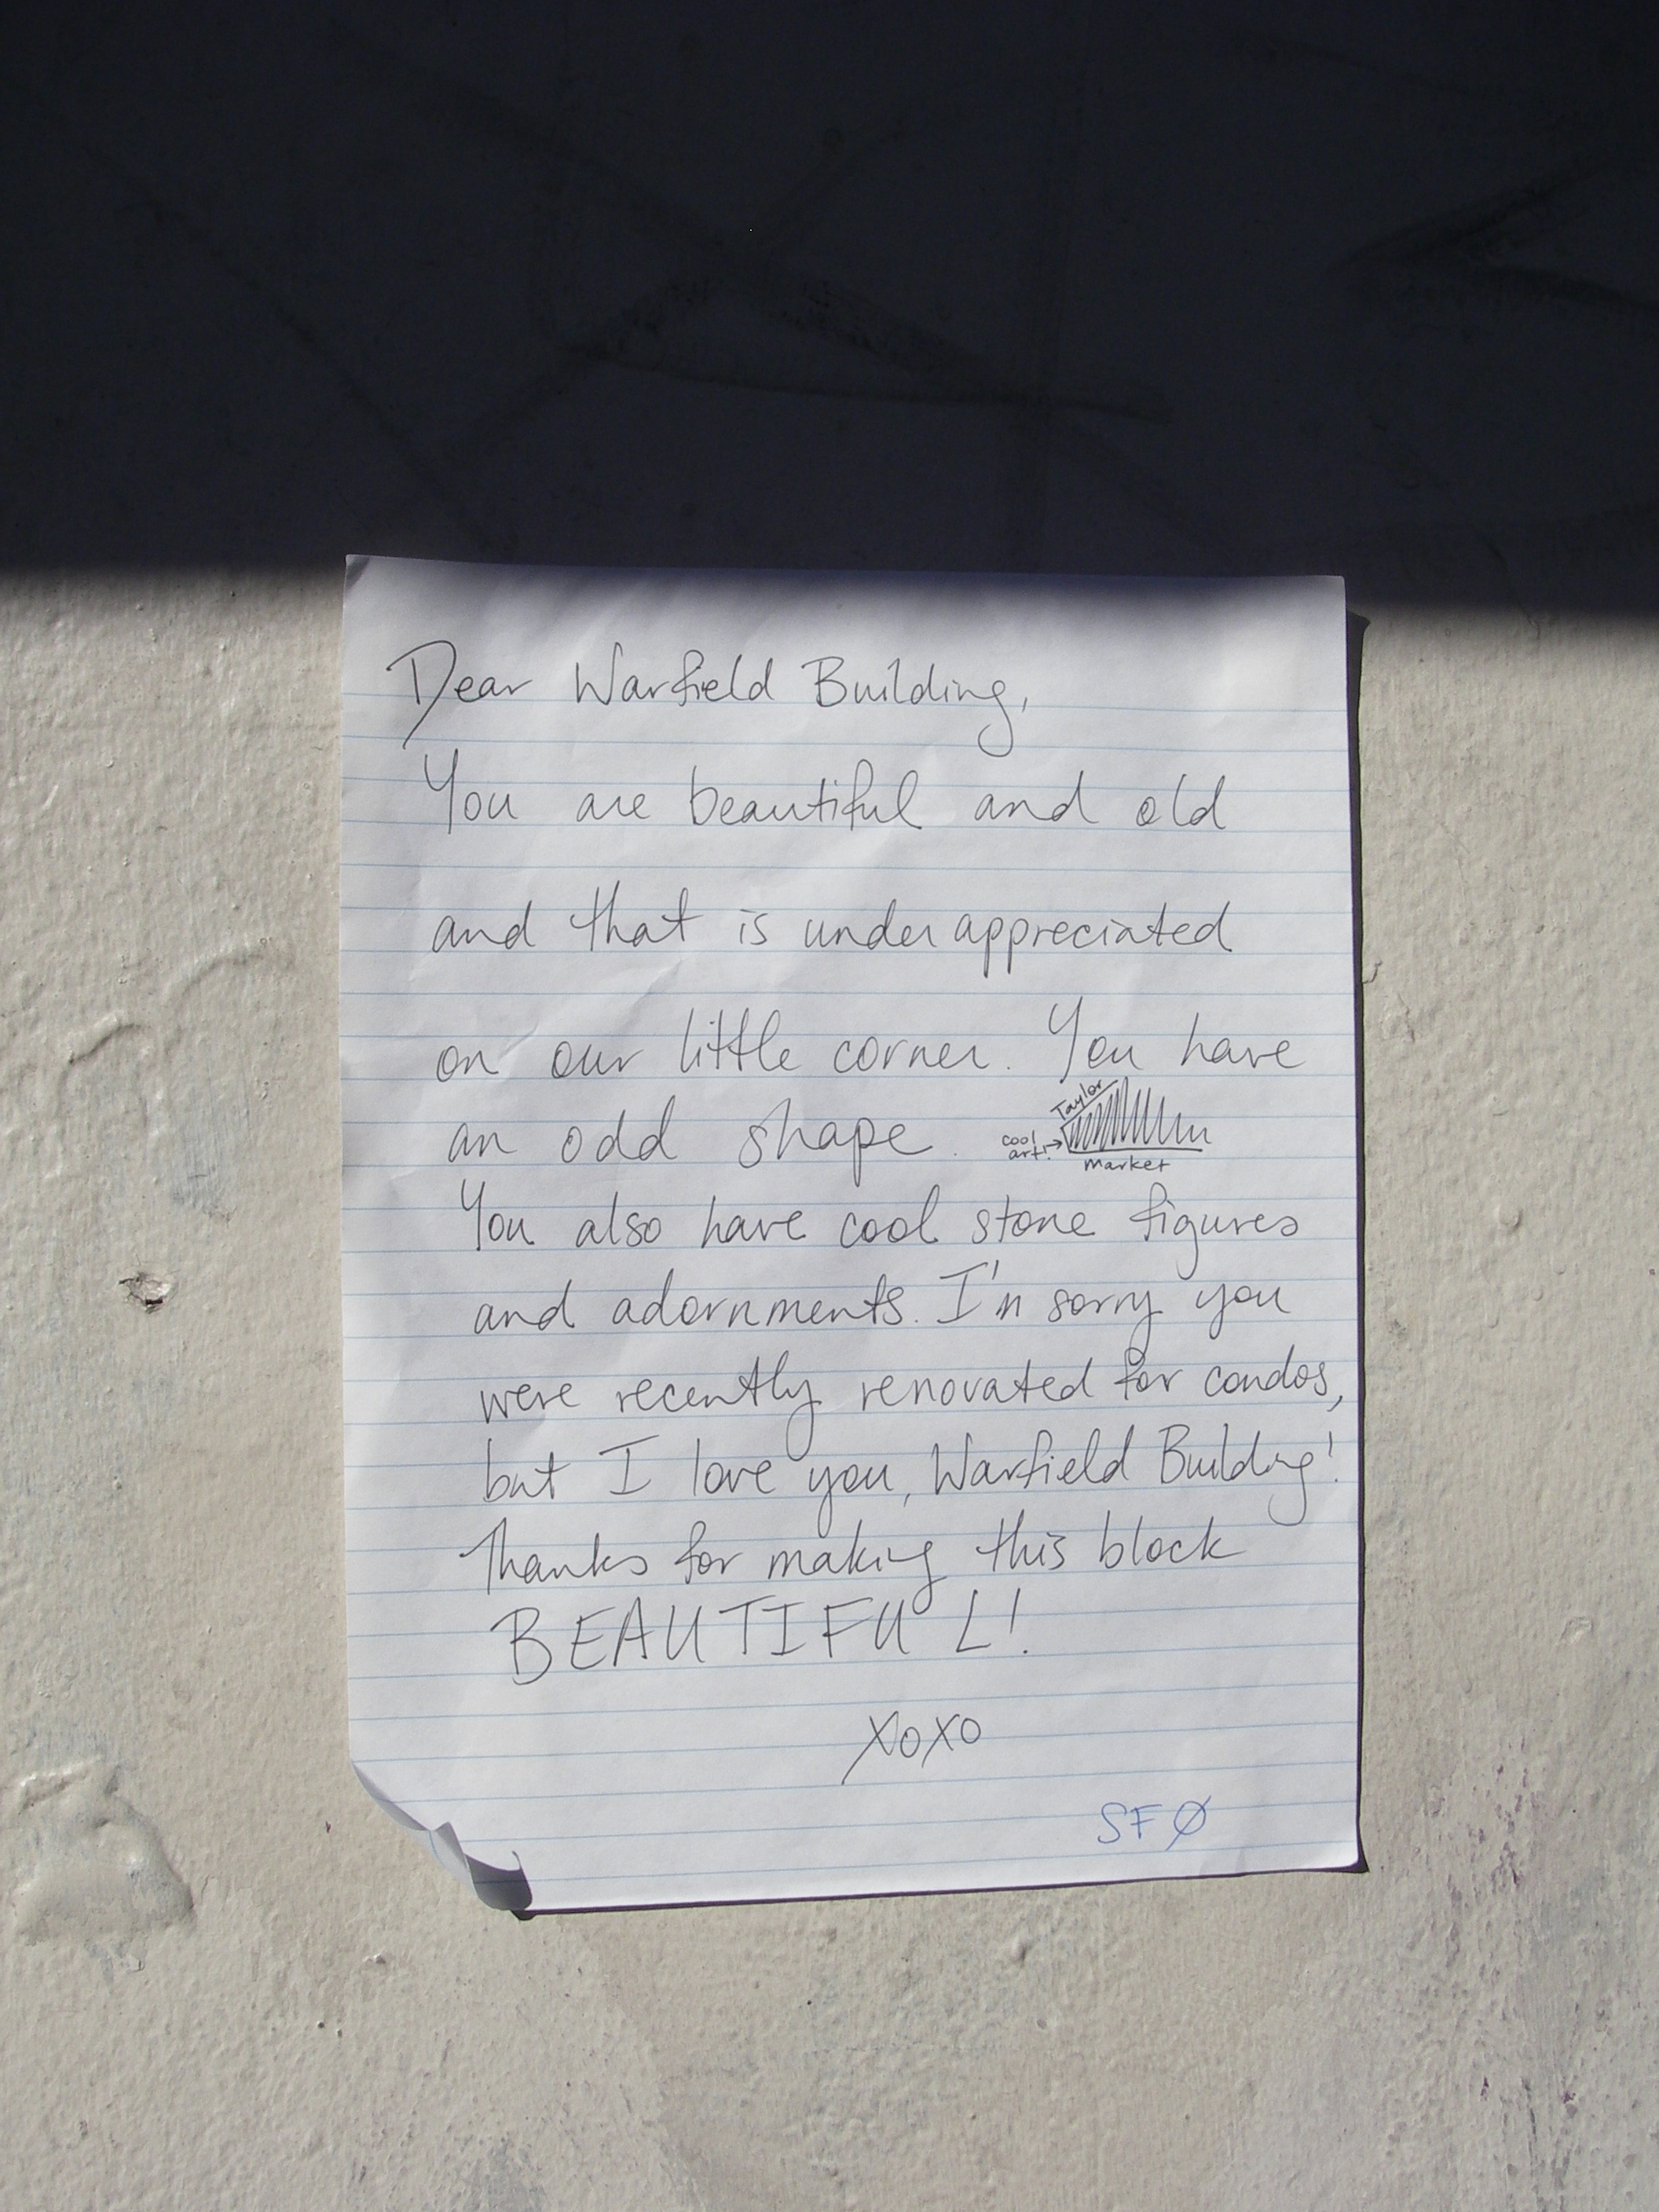 Dear Warfield Building,
You are beautiful and old
and that is underappreciated
on our little corner. You have
an odd shape.
Taylor
cool
art!
market
You also have cool stone figures
and adornments. I'm sorry you
were recently renovated for condos,
but I love you, Warfield Building!
Thanks for making this block
BEAUTIFUL!
XOXO
SFØ